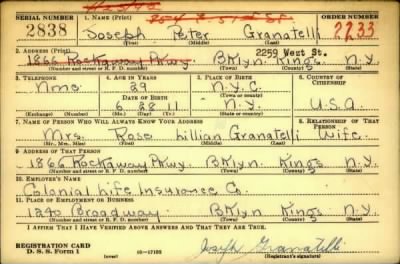 SERIAL NUMBER 1. NAME (Print) ORDER NUMBER
2838 Joseph Peter Granatelli 2233
(First) (Middle) (Last)
2. ADDRESS (Print) 2259 West St.
1866 Rockaway Pkwy Bklyn Kings N.Y.
(Number and street or R. F. D. number) (Town) (County) (State)
3. TELEPHONE 4. AGE IN YEARS 5. PLACE OF BIRTH 6. COUNTRY OF CITIZENSHIP
None 29 N.Y.C.
DATE OF BIRTH (Town or county)
6 28 11 N.Y. U.S.A
(Exchange) (Number) (Mo.) (Day) (Yr.) (State or country)
7. NAME OF PERSON WHO WILL ALWAYS KNOW YOUR ADDRESS 8. RELATIONSHIP OF THAT PERSON
Mrs. Rose Lillian Granatelli Wife
(Mr., Mrs., Miss) (First) (Middle) (Last)
9. ADDRESS OF THAT PERSON
1866 Rockaway Pkwy. Bklyn Kings N.Y.
(Number and street or R. F. D. number) (Town) (County) (State)
10. EMPLOYER'S NAME
Colonial Life Insurance Co.
11. PLACE OF EMPLOYMENT OR BUSINESS
1240 Broadway Bklyn Kings N.Y.
(Number and street or R. F. D. number) (Town) (County) (State)
I AFFIRM THAT I HAVE VERIFIED ABOVE ANSWERS AND THAT THEY ARE TRUE.
REGISTRATION CARD
D. S. S. Form 1 (over) 16-17105 Joseph Granatelli
(Registrant's signature)